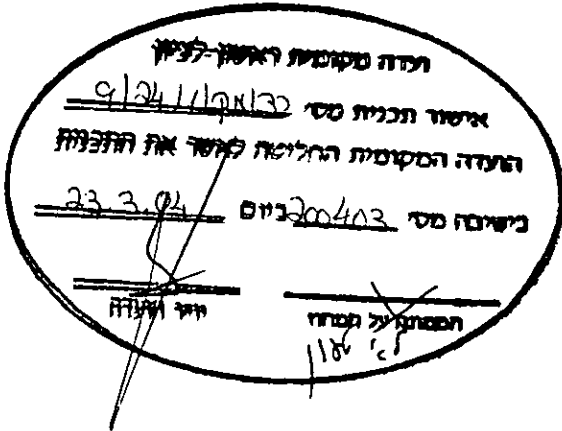 ועדה מקומית ראשון-לציון
אישור תכנית מס' רצ/מק/1/24/9
הועדה המקומית החליטה לאשר את התכנית
בישיבה מס' 200403 ביום 23.3.04
יו"ר הועדה
הממונה על המחוז